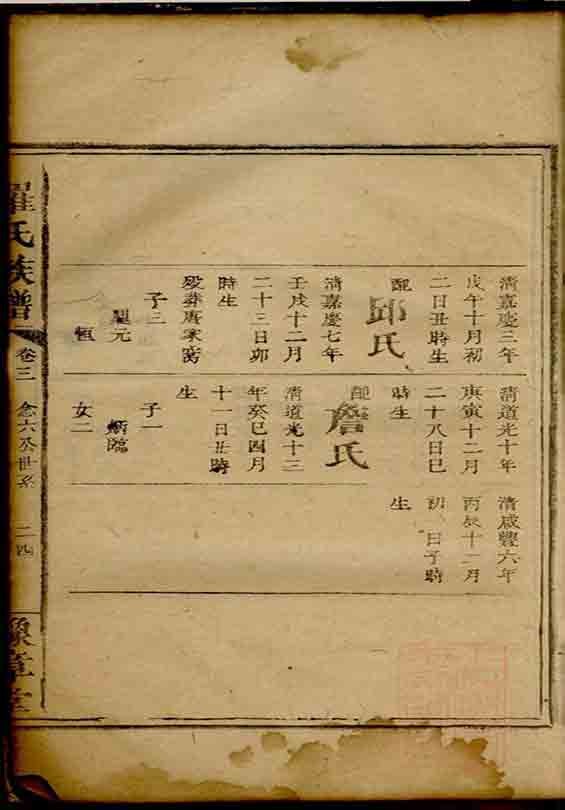 清嘉慶三年
戊午十月初
二日丑時生
配
邱氏
清嘉慶七年
壬戌十二月
二十三日卯
時生
歿葬唐家窩
子三
元
恒
清道光十年
庚寅十二月
二十八日巳
時生
配
詹氏
清道光十三
年癸巳四月
十一日丑時
生
子一
炳臨
女二
清咸豐六年
丙辰十二月
初 日子時
生
羅氏族譜
卷三
念六公世系
二四
豫章堂